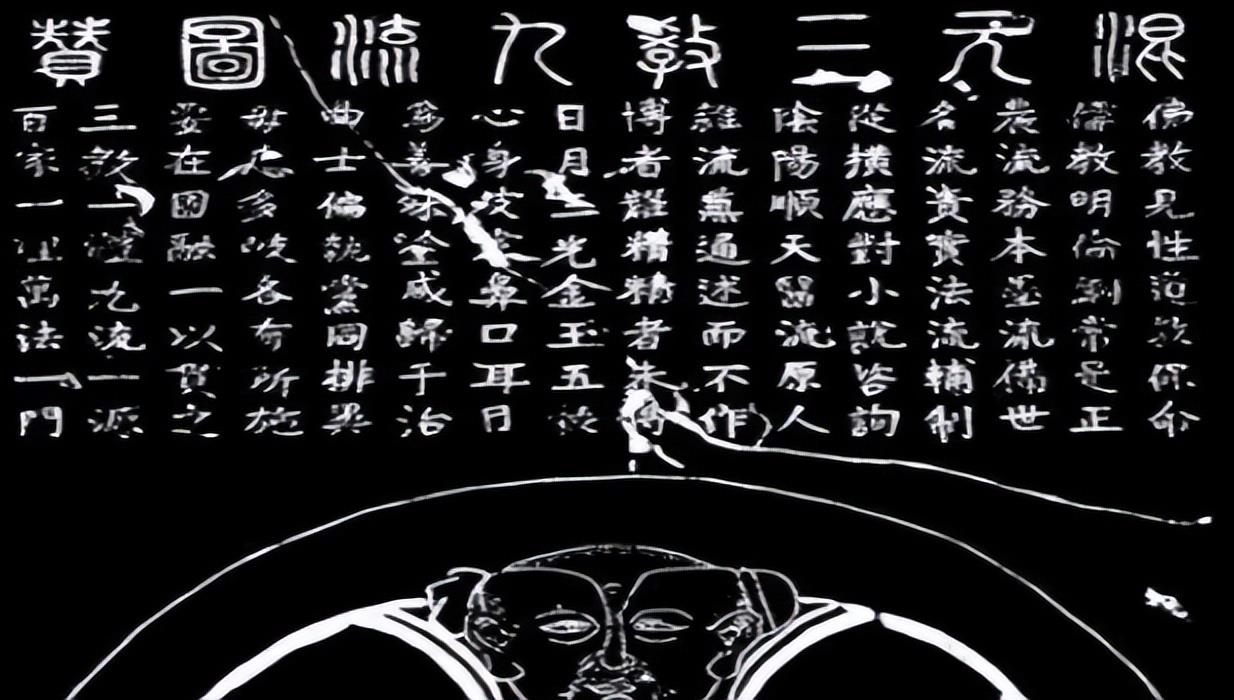 混元三教九流圖贊
佛教見性道教保命
儒教明倫綱常是正
農流務本墨流備世
名流責實法流輔制
從橫應對小說咨詢
陰陽順天醫流原人
雜流兼通述而不作
博者難精精者未博
日月三光金玉五谷
心身皮膚鼻口耳目
為善殊塗咸歸于治
曲士偏執黨同排異
毋患多歧各有所施
要在圓融一以貫之
三教一體九流一源
百家一理萬法一門